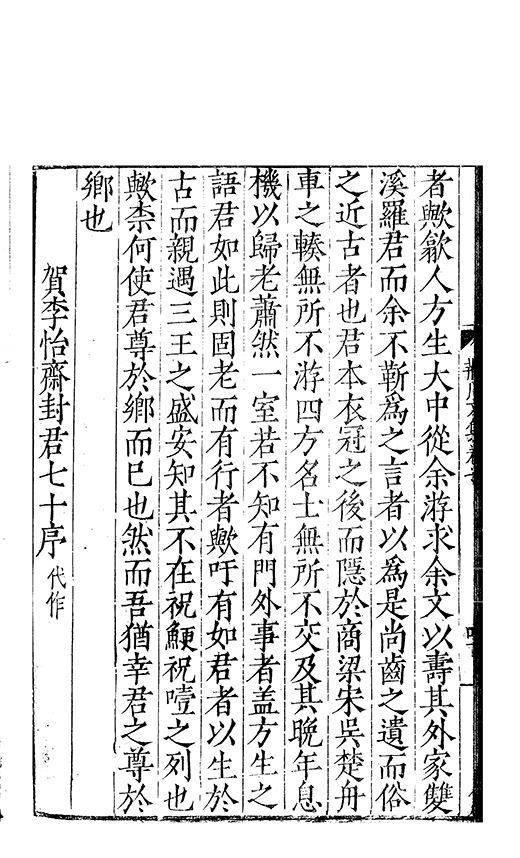 者歟歙人方生大中從余游求余文以壽其外家雙
溪羅君而余不靳爲之言者以爲是尚齒之遺而俗
之近古者也君本衣冠之後而隱於商梁宋吳楚舟
車之輳無所不游四方名士無所不交及其晚年息
機以歸老蕭然一室若不知有門外事者盖方生之
語君如此則固老而有行者歟吁有如君者以生於
古而親遇三王之盛安知其不在祝鯁祝噎之列也
歟柰何使君尊於鄉而已也然而吾猶幸君之尊於
鄉也
賀李怡齋封君七十序代作